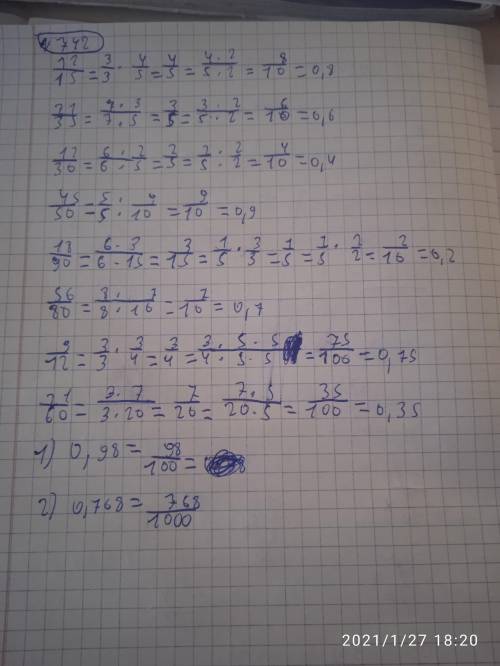 № 742
12/15 = 3/3 · 4/5 = 4/5 = 4·2/5·2 = 8/10 = 0,8
21/35 = 7·3/7·5 = 3/5 = 3·2/5·2 = 6/10 = 0,6
12/30 = 6/6 · 2/5 = 2/5 = 2/5 · 2/2 = 4/10 = 0,4
45/50 = 5/5 · 9/10 = 9/10 = 0,9
18/90 = 6·3/6·15 = 3/15 = 1/5 · 3/3 = 1/5 = 1/5 · 2/2 = 2/10 = 0,2
56/80 = 8·7/8·10 = 7/10 = 0,7
9/12 = 3/3 · 3/4 = 3/4 = 3·5·5/4·5·5 = 75/100 = 0,75
21/60 = 3·7/3·20 = 7/20 = 7·5/20·5 = 35/100 = 0,35
1) 0,98 = 98/100 =
2) 0,768 = 768/1000
2021/1/27 18:20